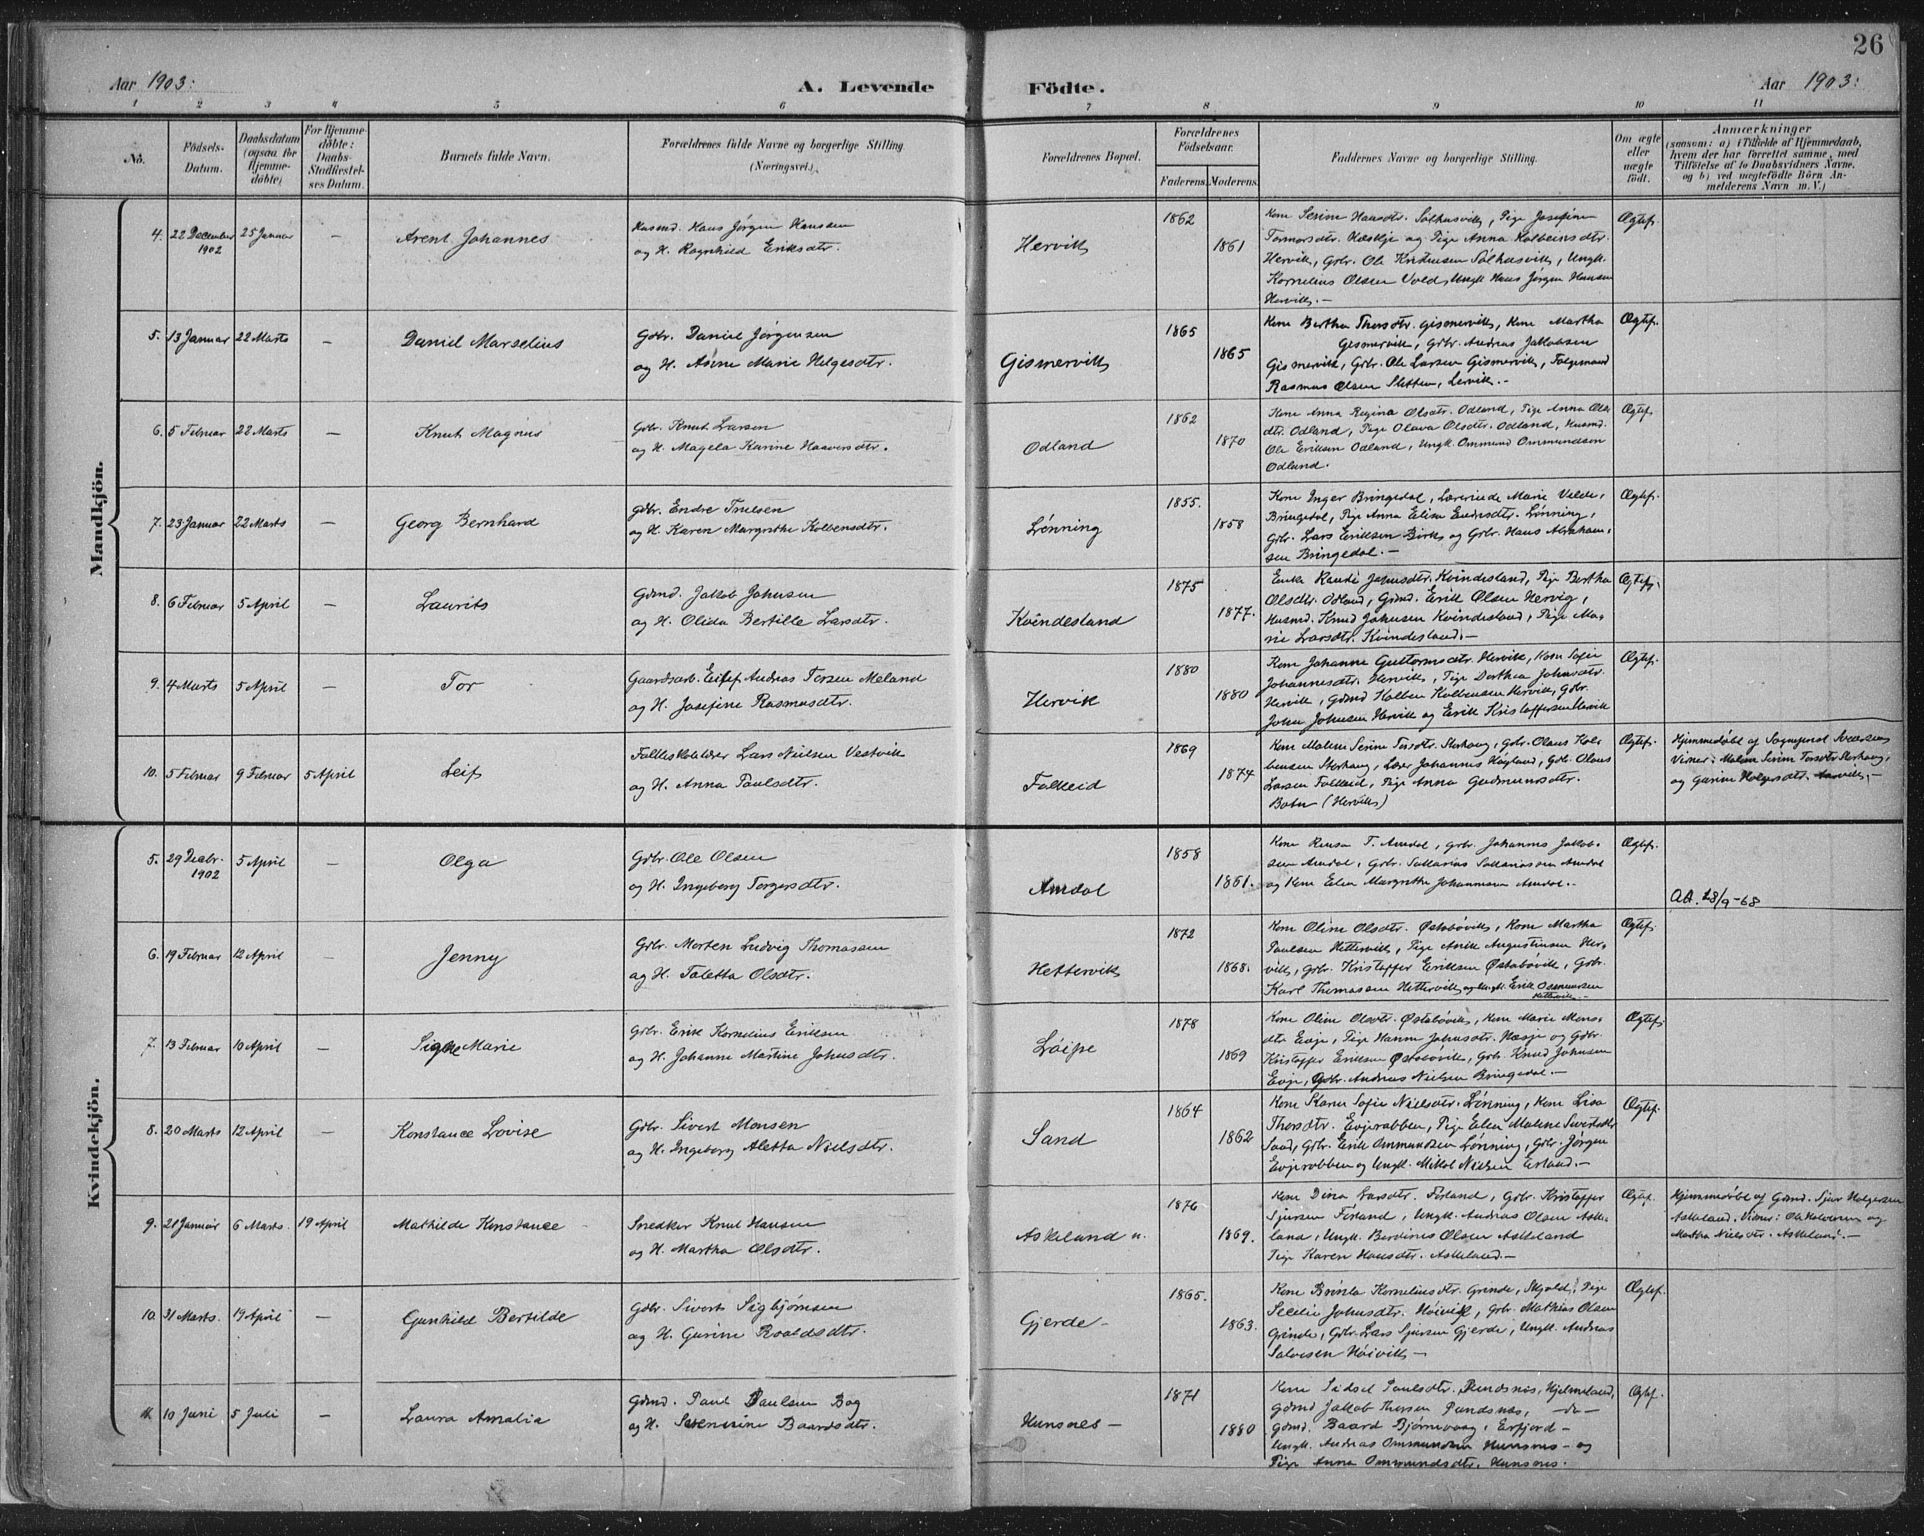 26
Aar 1903:
A. Levende
Födte.
Aar 1903:
1 2 3 4 5 6 7 8 9 10 11
No.
Födsels-Datum.
Daabsdatum (ogsaa for Hjemme-döbte)
For Hjemme-döbte: Daabs-Stadfæstel-ses Datum.
Barnets fulde Navn.
Forældrenes fulde Navne og borgerlige Stilling. (Næringsvei.)
Forældrenes Bopæl.
Forældrenes Födselsaar.
Faderens. Moderens.
Faddernes Navne og borgerlige Stilling.
Om ægte eller uægte födt.
Anmærkninger
(saasom: a) i Tilfælde af Hjemmedaab, hvem der har forrettet samme, med Tilföielse af to Daabsvidners Navne, og b) ved uægtefödte Börn An-melderens Navn m. V.)
Mandkjön.
4. 22 December 1902
25 Januar
—
Arent Johannes
Husmd. Hans Jørgen Hansen
og H. Ragnhild Eriksdtr.
Hervik
1862
1861
Kone Serine Hansdtr. Solhusvik, Pige Josefine
Tormorsdtr. Hæskje og Pige Anna Kolbeinsdtr.
Hervik, Gbr. Ole Kristensen Solhusvik, Ungk.
Kornelius Olsen Vold, Ungk Hans Jørgen Hansen
Hervik. —
Ægtef.
5. 13 Januar
22 Marts
—
Daniel Marselius
Gdbr. Daniel Jørgensen
og H. Asine Marie Helgesdtr.
Gismervik
1865
1865
Kone Bertha Thorsdtr. Gismervik, Kone Martha
Gismervik, Gdbr. Andreas Jakobsen
Gismervik, Gdbr. Ole Larsen Gismervik, Følgemand
Rasmus Olsen Sletten, Lervik. —
Ægtef.
6. 5 Februar
22 Marts
—
Knut Magnus
Gdbr. Knut Larsen
og H. Magela Karine Haaversdtr.
Odland
1862
1870
Kone Anna Regina Olsdtr. Odland, Pige Anna Ols-
dtr. Odland, Pige Olava Olsdtr. Odland, Husmd.
Ole Eriksen Odland, Ungk. Ommund Ommundsen
Odland.
Ægtef.
7. 23 Januar
22 Marts
—
Georg Bernhard
Gdbr. Endre Truelsen
og H. Karen Margrethe Kolbensdtr.
Lønning
1855.
1858
Kone Inger Bringedal, Lærerinde Marie Velde,
Bringedal, Pige Anna Elisa Endresdtr. Lønning,
Gdbr. Lars Eriksen Birk, og Gdbr. Hans Abraham-
sen Bringedal. —
Ægtef.
8. 6 Februar
5 April
—
Laurits
Gdmd. Jakob Johnsen
og H. Olida Bertille Larsdtr.
Kvindesland
1875
1877.
Enke Johnsdtr. Kvindesland, Pige Bertha
Olsdtr. Odland, Gdmd. Erik Olsen Hervig,
Husmd. Knud Johnsen Kvindesland, Pige Ma-
rie Larsdtr. Kvindesland. —
Ægtef.
9. 4 Marts
5 April
—
Tor
Gaardarb. Andreas Torsen Meland
og H. Josefine Rasmusdtr.
Hervik
1880
1880
Kone Johanne Guttormsdtr. Hervik, Kone Sofie
Johannesdtr. Hervik, Pige Dorthea Johnsdtr.
Hervik, Gdmd Kolben Kolbensen Hervik, Gdbr.
John Johnsen Hervik og Erik Kristoffersen Hervik
Ægtef.
10. 5 Februar
9 Februar
5 April
Leif
Lars Nielsen Vestvik
og H. Anna Paulsdtr.
Falkeid
1869
1874
Kone Malene Serine Torsdtr. Storhaug, Gdbr. Olaus Kol-
bensen Storhaug, Lærer Johannes Høgland, Gdbr. Olaus
Larsen Falkeid, Pige Anna Gudmundsdtr.
Botn (Hervik)
Ægtef.
Hjemmedøbt af Sogneprest
Vidner: Malene Serine Torsdtr. Storhaug,
og Gurine Holgersdtr.
Kvindekjön.
5. 29 Decbr. 1902
5 April
—
Olga
Gdbr. Ole Olsen
og H. Ingeborg Torgersdtr.
Amdal
1858
1861.
Kone T. Amdal, Gdbr. Johannes Jakob-
sen Amdal, Gdbr. Amdal
og Kone Elen Margrethe Johannesen Amdal. —
Ægtef.
AA. 28/9-68
6. 19 Februar
12 April
—
Jenny
Gdbr. Morten Ludvig Thomassen
og H. Taletta Olsdtr.
Hettervik
1872
1868.
Kone Oline Olsdtr. Østabøvik, Kone Martha
Paulsen Hettervik, Pige Augustinsen Her-
vik, Gdbr. Kristoffer Eriksen Østabøvik, Gdbr.
Karl Thomassen Hettervik og Ungk. Erik
Hettervik. —
Ægtef.
7. 13 Februar
10 April
—
Signe Marie
Gdbr. Erik Kornelius Eriksen
og H. Johanne Martine Johnsdtr.
Løipe
1878
1869
Kone Oline Olsdtr. Østabøvik, Kone Marie Mons-
dtr. Evje, Pige Hanne Johnsdtr. og Gdbr.
Kristoffer Eriksen Østabøvik, Gdbr. Knud Johnsen
Evje, Gdbr. Andreas Nielsen Bringedal. —
Ægtef.
8. 20 Marts
12 April
—
Konstance Lovise
Gdbr. Sivert Monsen
og H. Ingeborg Aletta Nielsdtr.
Sand
1864
1862
Kone Karen Sofie Nielsdtr. Lønning, Kone Lisa
Thorsdtr. Evjerabben, Pige Elen Malene Sivertsdtr
Sand, Gdbr. Erik Ommundsen Lønning, Gdbr. Jørgen
Evjerabben og Ungk. Mikal Nielsen Erland. —
Ægtef.
9. 21 Januar
6 Marts.
19 April
Mathilde Konstance
Snedker Knut Hansen
og H. Martha Olsdtr.
Askeland n.
1876
1869.
Kone Dina Larsdtr. Førland, Gdbr. Kristoffer
Sjursen Førland, Ungk. Andreas Olsen Aske-
land, Ungk. Berdines Olsen Askeland
Pige Karen Hansdtr. Askeland. —
Ægtef.
Hjemmedøbt af Gdmd. Sjur Holgersen
Askeland. Vidner: og
Martha Nielsdtr. Askeland. —
10. 31 Marts.
19 April
—
Gunhild Bertilde
Gdbr. Sivert Sigbjørnsen
og H. Gurine Roaldsdtr.
Gjerde —
1865.
1863.
Kone Brònla Korneliusdtr. Grinde, Skjold, Pige
Secelie Johnsdtr. Høivik, Gdbr. Mathias Olsen
Grinde, Gdbr. Lars Sjursen Gjerde, Ungk. Andreas
Salvesen Høivik —
Ægtef.
11. 10 Juni
5 Juli
—
Laura Amalia
Gdmd. Paul Paulsen Bog
og H. Severine Baardsdtr.
Hunsnes —
1871
1880
Kone Sidsel Paulsdtr. Pundsnes, Hjelmeland,
Gdmd Jakob Thorsen Pundsnes, — do —
Gdmd. Baard Bjørnevaag, Erfjord —
Ungk. Andreas Ommundsen Hunsnes — og
Pige Anna Ommundsdtr. Hunsnes.
Ægtef.